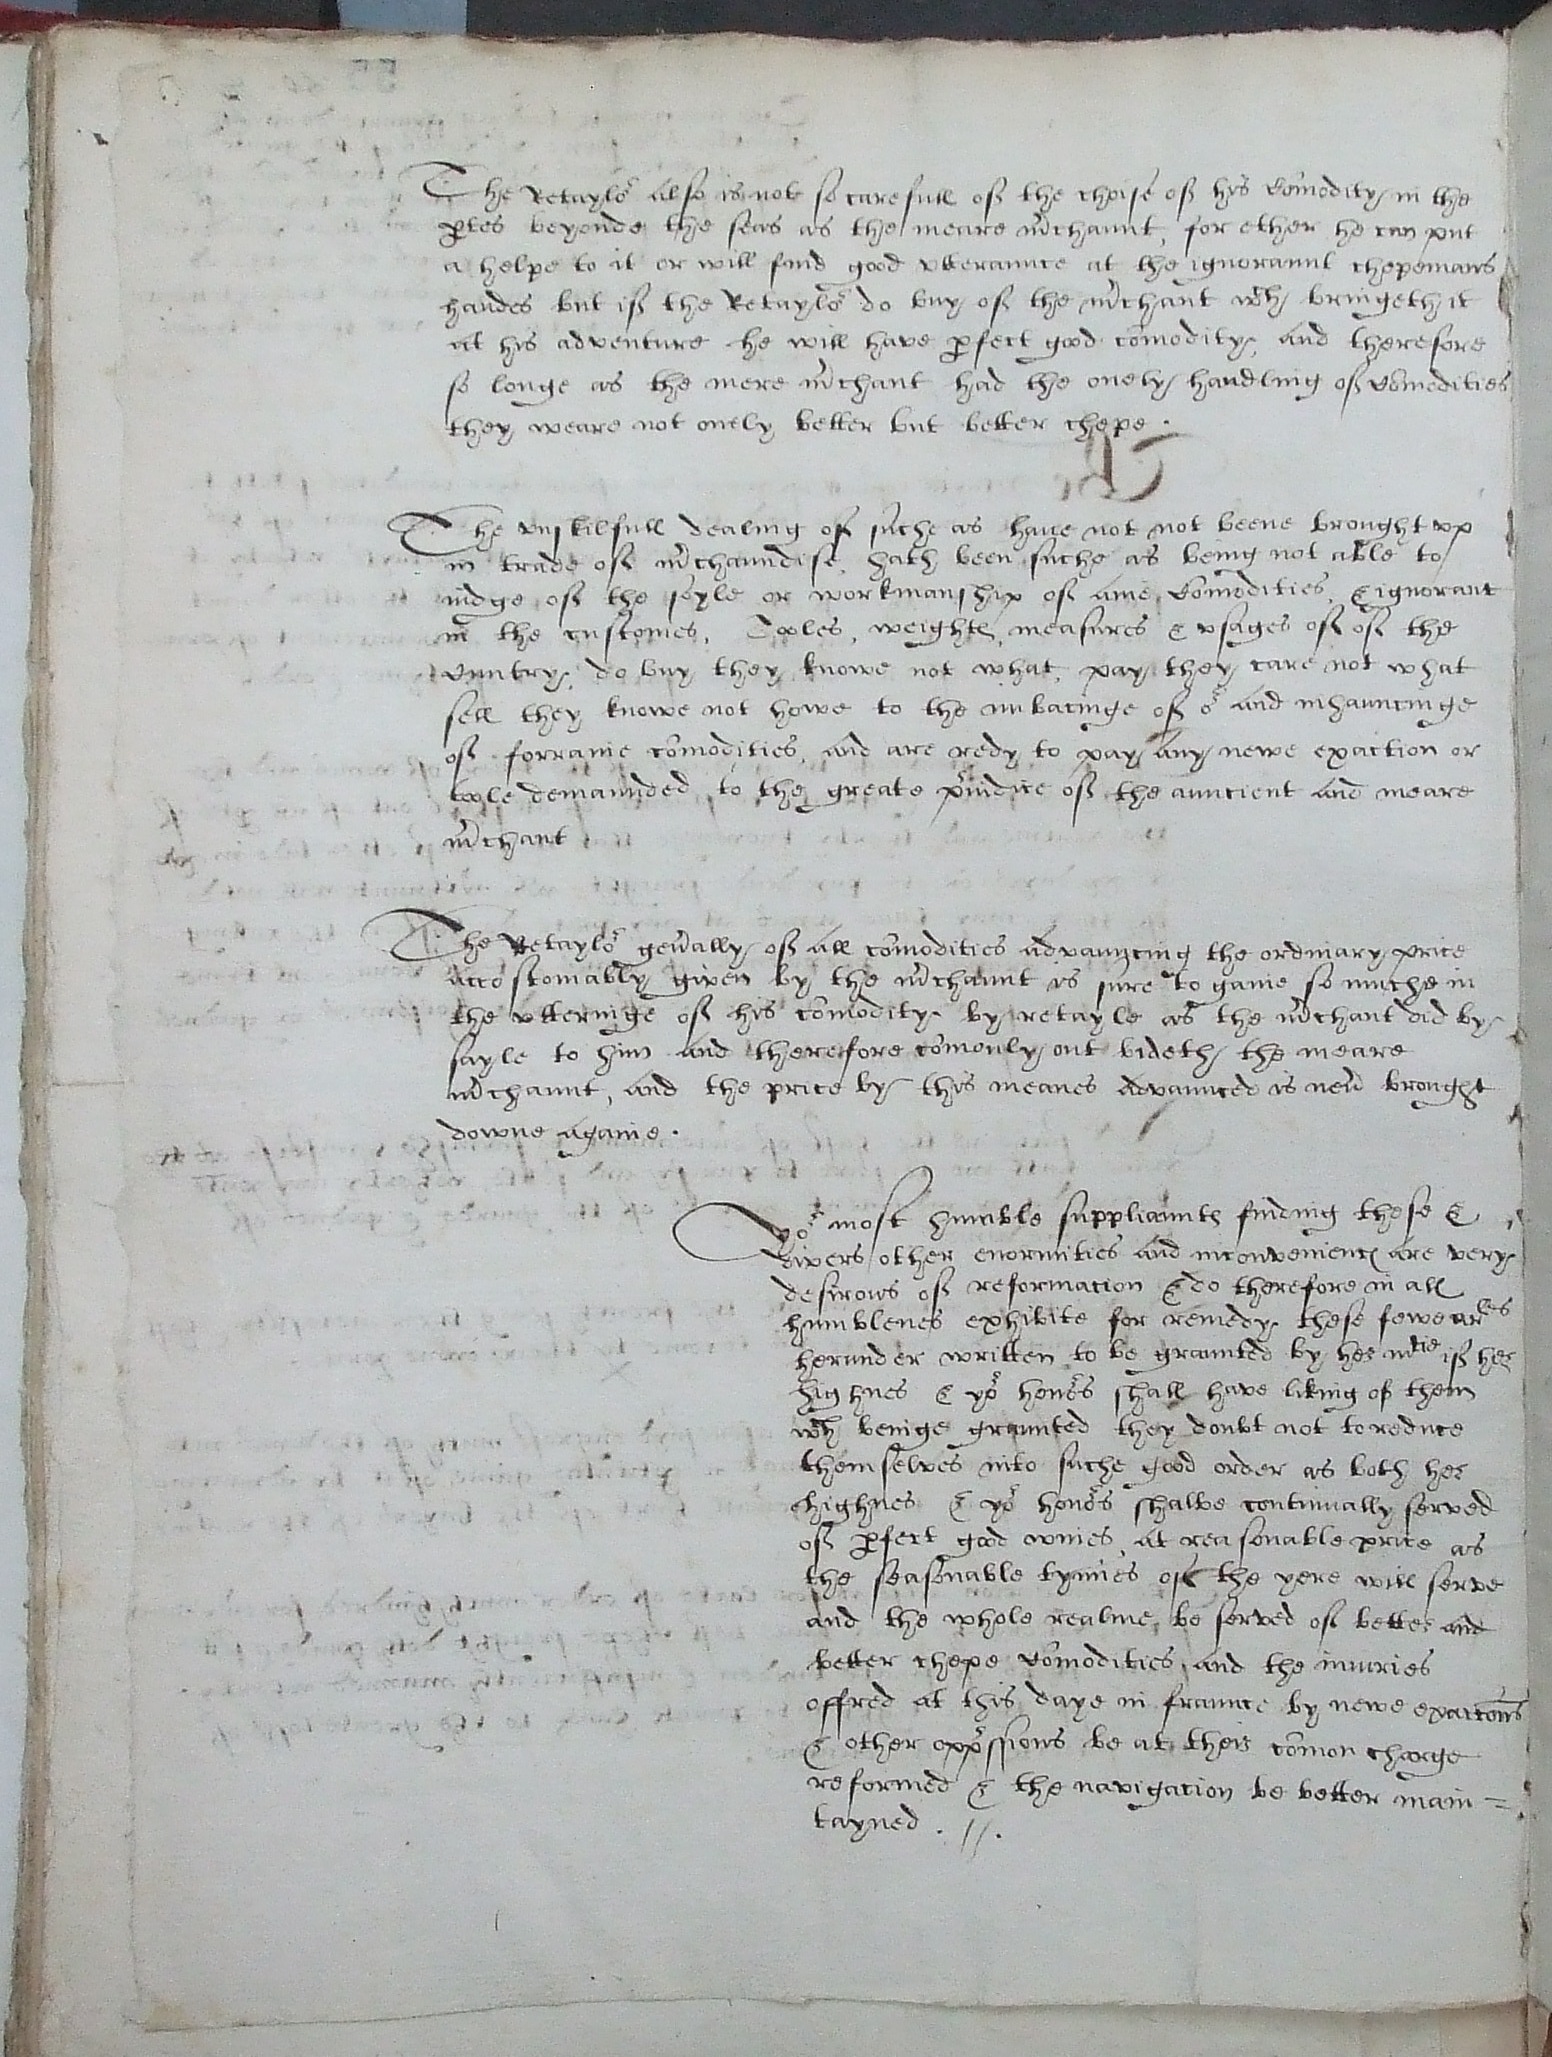 The Retaylor also is not so carefull of the choise of his comodity in the
ptes beyonde the seas as the meare mchaunt, for ether he can put
a helpe to it or will find good vtteraunce at the ignoraunt chepemans
handes but if the Retaylor do buy of the mchant wch bringeth it
at his adventure he will have pfect good comodity, and therefore
so longe as the mere mchant had the onely handling of comodities
they weare not onely better but better chepe .
The vnskilfull dealing of suche as haue not not beene brought vp
in trade of mchaundise, hath been suche as being not able to
iudge of the or workmanship of anie comodities, & ignorant
in the customes, Tooles, weightes, measures & vsages of of the
cuntry, do buy they knowe not what, pay they care not what
sell they knowe not howe to the imbacinge of or and inhauncinge
of forraine comodities, and are redy to pay any newe exaction or
toole demaunded, to the greate piudice of the auncient and meare
mchant
The Retaylor genally of all comodities advauncing the ordinary price
accostomably given by the mchaunt is sure to gaine so muche in
the vtteringe of his comodity by retayle as the mchant did by
sayle to him and therefore comonly out bideth the meare
mchaunt, and the price by this meanes advaunced is nev brought
downe againe .
Yor most humble suppliauntes finding these &
divers other enormities and inconveniences are very
desirous of reformacion & do therefore in all
humblenes exhibite for remedy these fewe arles
herunder written to be graunted by her matie if her
highnes & yor honors shall have liking of them
wch beinge graunted they doubt not to reduce
themselves into suche good order as both her
highnes & yor honors shalbe continually served
of pfect good wines at reasonable price as
the seasonable tymes of the yere will serve
and the whole realme be served of better and
better chepe comodities, and the iniuries
offred at this daye in fraunce by newe exaccons
& other oppssions be at their comon charge
reformed & the navigacion be better main=
tayned . //.